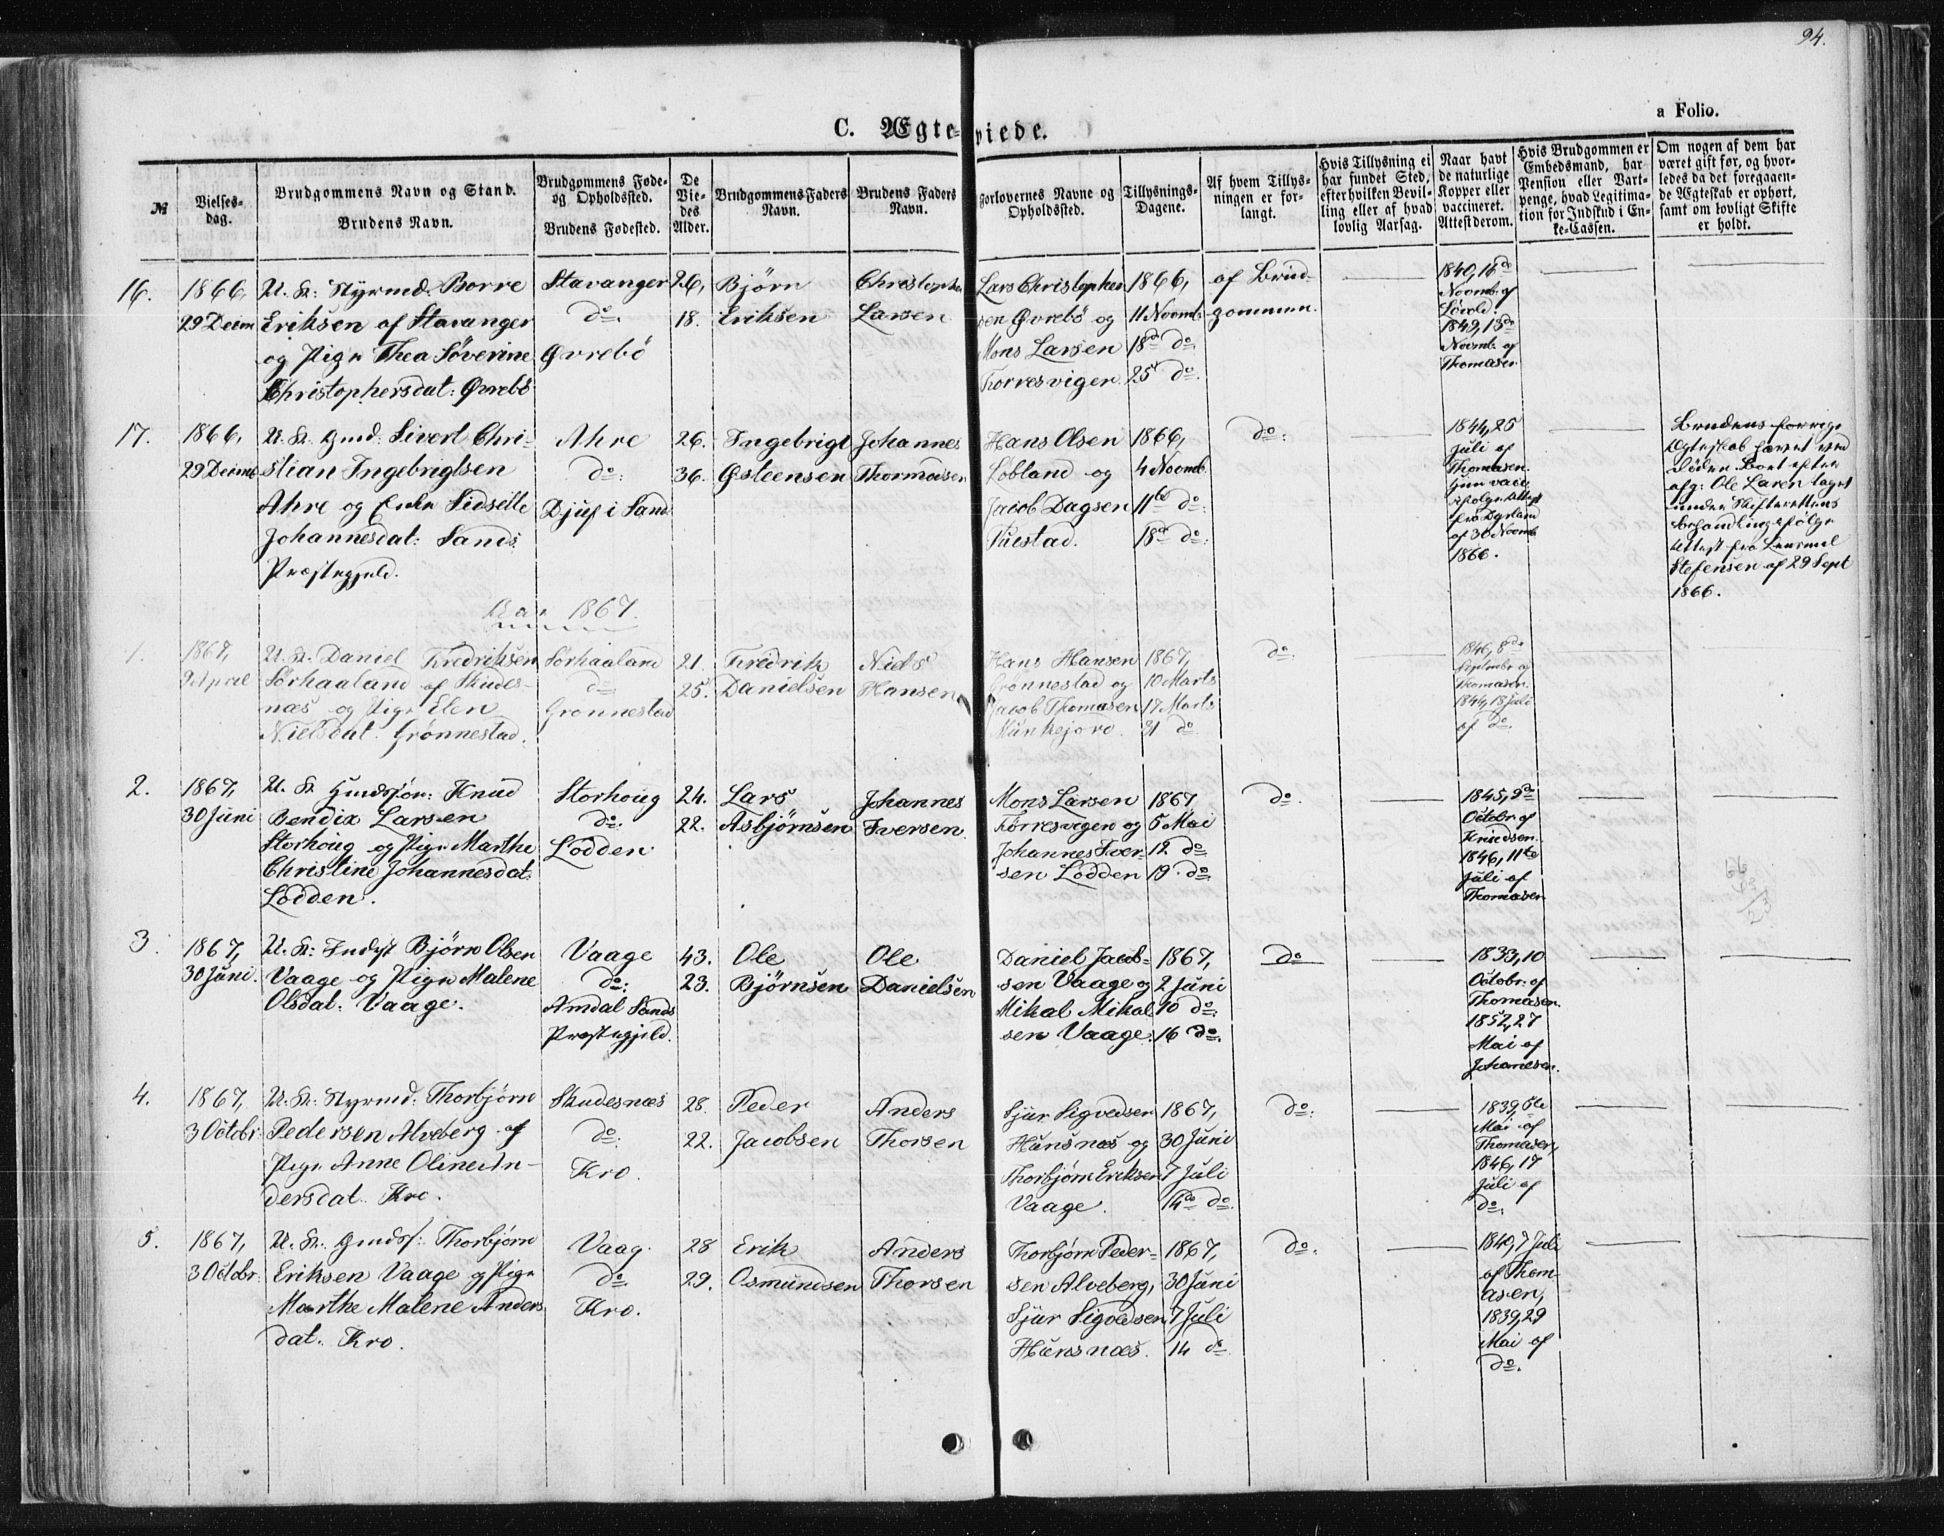 94.
a Folio.
C. Ægteviede.
№
Vielses-
dag.
Brudgommens Navn og Stand.
Brudens Navn.
Brudgommens Føde-
og Opholdssted.
Brudens Fødested.
De
Vie-
des
Alder.
Brudgommens Faders
Navn.
Brudens Faders
Navn.
Forlovernes Navne og
Opholdssted.
Tillysnings-
Dagene.
Af hvem Tillys-
ningen er for-
langt.
Hvis Tillysning ei
har fundet Sted,
efter hvilken Bevil-
ling eller af hvad
lovlig Aarsag.
Naar havt
de naturlige
Kopper eller
vaccineret.
Attest derom.
Hvis Brudgommen er
Embedsmand, har
Pension eller Vart-
penge, hvad Legitima-
tion for Indskud i En-
ke-Cassen.
Om nogen af dem har
været gift før, og hvor-
ledes da det foregaaen-
de Ægteskab er ophørt,
samt om lovligt Skifte
er holdt.
16.
1866,
29 Decmb
U. K: Styrmd. Borre
Eriksen af Stavanger
og Pige Thea Søverine
Christophersdat: Øvrebö
Stavanger
do:
Øvrebö
26,
18.
Bjørn
Eriksen
Christopher
Larsen
Lars Christopher
sen Øvrebö og
Mons Larsen
Thorresvigen
1866,
11 Novmb
18de do:
25 do:
af Brud-
gommen.
1840, 16de
Novmb. af
Løvold.
1849, 13de
Novmb. af
Thomasen
17.
1866,
29 Decmb
U. K. Gmd: Sivert Chri-
stian Ingebrigtsen
Ahre og Enke Sidselle
Johannesdat: Sands
Præstegjeld.
Ahre
do:
Djup i Sand
26.
36.
Ingebrigt
Østeensen
Johannes
Thormodsen
Hans Olsen
Løbland og
Jacob Dagsen
Viestad.
1866,
4 Novmb
11te do:
18de do:
do:
1844, 25
Juli af
Thomasen.
hun vacc
ifølge Attest
fra
af 30 Novmb
1866.
Brudens forrige
Ægteskab hævet ved
Døden. Boet efter
afg: Ole Larsen taget
under Skifterettens
Behandling ifølge
Attest fra Lensmd
Stefensen af 29 Sept
1866.
Aar 1867.
1.
1867,
9 April
U. K. Daniel Fredriksen
Sørhaaland af Skudes-
næs og Pige Elen
Nielsdat. Grønnestad.
Sørhaaland
do:
Grønnestad
21.
25.
Fredrik
Danielsen
Niels
Hansen
Hans Hansen
Grønnestad og
Jacob Thomasen
Munkejord.
1867,
10 Marts
17 Marts
31 do:
do:
1846, 8de
Septmbr af
Thomasen.
1844, 18 Juli
af do.
2.
1867,
30 Juni
U. K Gmdssøn: Knud
Bendix Larsen
Storhoug og Pige Marthe
Christine Johannesdat:
Lodden.
Storhoug
do:
Lodden
24.
22.
Lars
Asbjørnsen
Johannes
Iversen
Mons Larsen
Torresvigen og
Johannes Iver-
sen Lodden
1867
5 Mai
12 do:
19. do:
do.
1845, 9de
Octobr af
Knudsen.
1846, 11te
Juli af
Thomasen
66
43
23
3.
1867,
30 Juni.
U. K: Indst Bjørn Olsen
Vaage og Pige Malene
Olsdat: Vaage.
Vaage
do:
Amdal Sands
Præstegjeld.
43.
23.
Ole
Bjørnsen
Ole
Danielsen
Daniel Jacob-
sen Vaage og
Mikal Mikal
sen Vaage.
1867,
2 Juni
10 do:
16 do:
do
1833, 10
Octobr: af
Thomasen.
1852, 27
Mai af
Johanesen.
4.
1867,
3 Octobr
U. K: Styrmd: Thorbjørn
Pedersen Alveberg af
Pige Anne Oline An-
dersdat. Kro.
Skudesnæs
do:
Kro.
28.
22.
Peder
Jacobsen
Anders
Thorsen
Sjur Sigvedsen
Hunsnæs og
Thorbjørn Eriksen
Vaage.
1867,
30 Juni
7 Juli
14de do:
do:
1839, 6te
Mai af
Thomasen,
1846, 17
Juli af
do:
5.
1867,
3 Octobr.
U. K. Gmdsf: Thorbjørn
Eriksen Vaage og Pige
Marthe Malene Anders
dat. Kro.
Vaag.
do:
Kro.
28
29.
Erik
Osmundsen
Anders
Thorsen
Thorbjørn Peder-
sen Alveberg,
Sjur Sigvldsen
Hunsnæs.
1867,
30 Juni
7 Juli
14 do.
do:
1840, 7 Juli
af Thom-
asen,
1839, 29
Mai af
do: